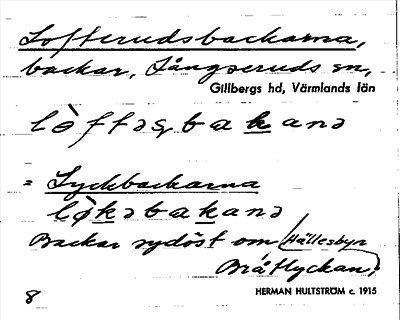 Lofterudsbackarna,
backar, Långseruds sn,
Gillbergs hd, Värmlands län
lòftəsbakanə
= Lyckbackarna
lø̀kəbakanə
Backar sydöst om Hällesbyn
Bråtlyckan,
8
HERMAN HULTSTRÖM c. 1915